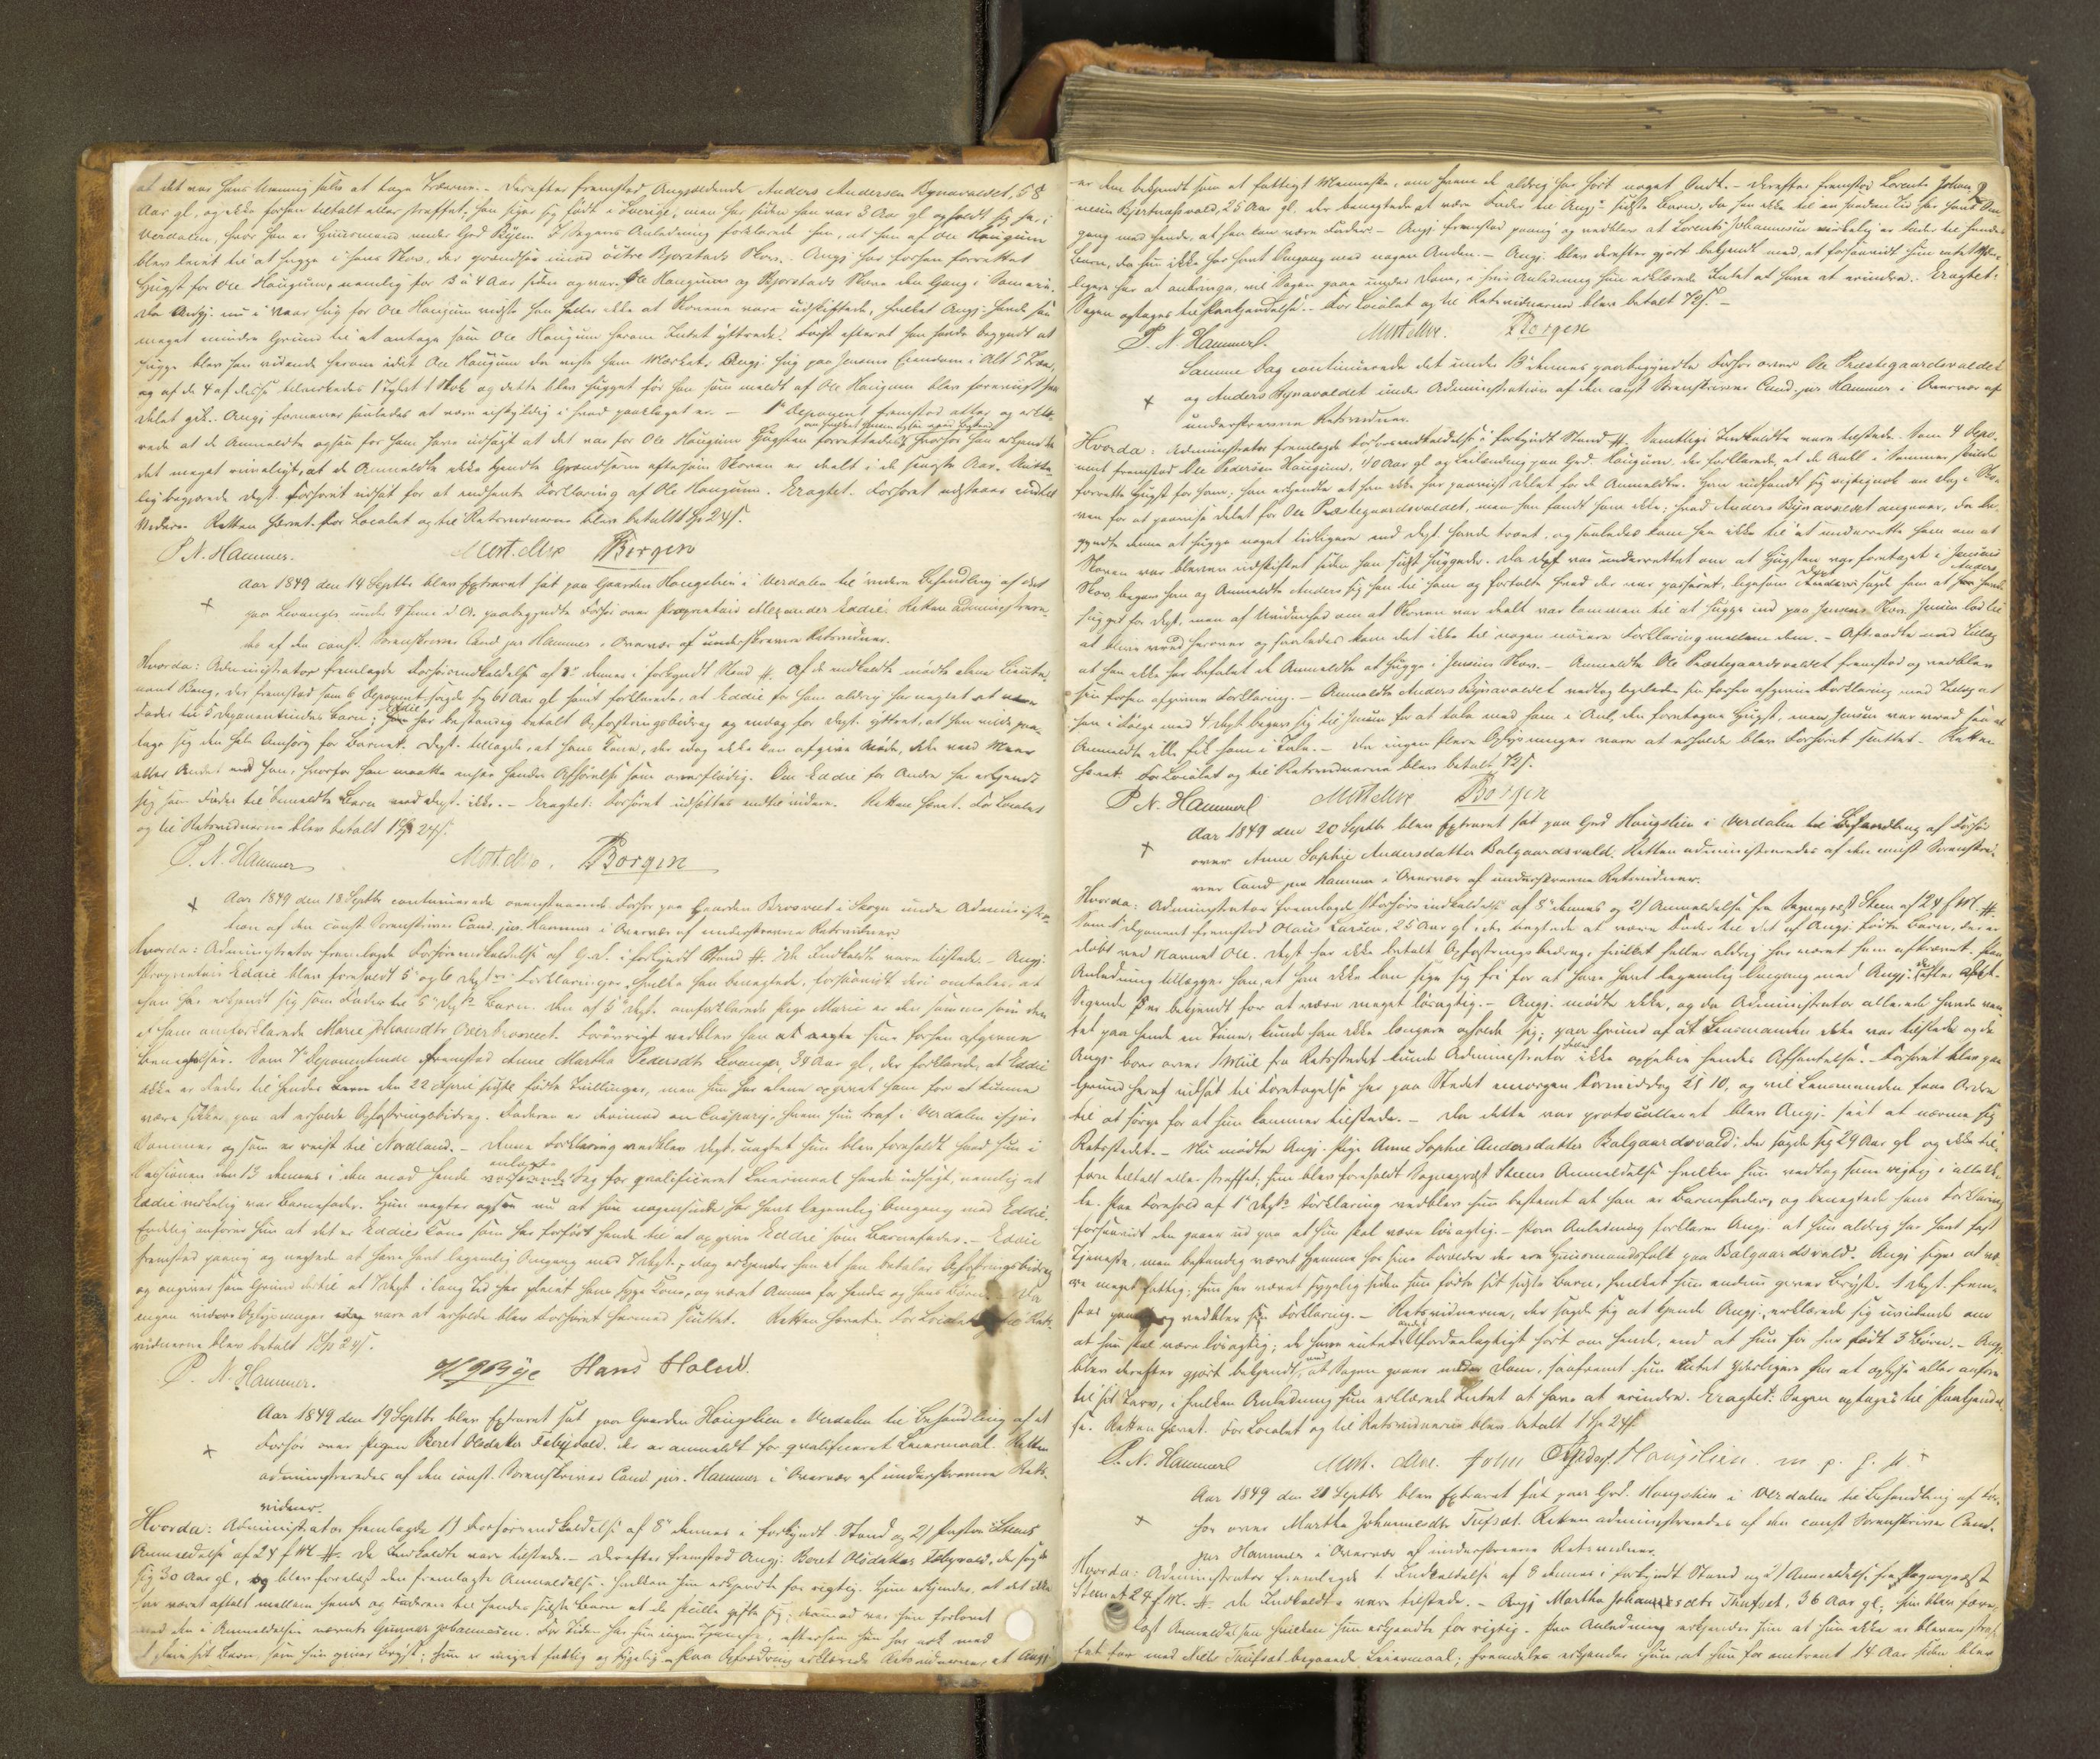 at det var hans Mening selv at tage Træerne. - Derefter fremstod Angjældende Anders Andersen Bynavaldet, 58
Aar gl, og ikke forhen tiltalt eller straffet; han siger sig født i Sverige, men har siden han var 3 Aar gl opholdt sig her i
Verdalen, hvor han er Huusmand under Grd Byen. I Sagens Anledning forklarede han, at han af Ole Haugum
blev leiet til at hugge i hans Skov, der grændser imod östre Bjorstads Skov. Angj. har forhen forrettet
Hugst for Ole Haugum, nemlig for 3 à 4 Aar siden og var Ole Haugums og Bjorstads Skove den Gang i Sameie.
Da Angj. nu i Vaar hug for Ole Haugum vidste han heller ikke at Skovene vare udskiftede, hvilket Angj. havde saa
meget mindre Grund til at antage som Ole Haugum herom Intet yttrede. Først efterat han havde begyndt at
hugge blev han vidende herom idet Ole Haugum da viste ham Mærket. Angj. hug paa Jensens Eiendom i Alt 5 Træer,
og af de 4 af disse tilvirkedes 1 Tylvt 1 Stok og dette blev hugget før han som meldt af Ole Haugum blev foreviist hvor
Delet gik. Angj. formener saaledes at være uskyldig i hvad paaklaget er. - 1ste Deponent fremstod atter og erklæ-
rede at de Anmeldte ogsaa for ham have udsagt at det var for Ole Haugum Hugsten forrettedes, hvorfor han erkjendte
det meget rimeligt, at de Anmeldte ikke kjendte Grændserne eftersom Skoven er deelt i de seneste Aar. Slutte-
lig begjærede Dept. Forhøret udsat for at indhente Forklaring af Ole Haugum. Eragtet. Forhøret udstaaer indtil
Videre. Retten hævet. For Localet og til Retsvidnerne blev betalt 1 Sp 24 s.
P. N. Hammer. Mort. Moe Borgen
Aar 1849 den 14 Septbr blev Extraret sat paa Gaarden Haugslien i Verdalen til videre Behandling af det
paa Levanger under 9 Juni d. A. paabegyndte Forhør over Proprietair Alexander Eddie. Retten administrere-
des af den const. Sorenskriver Cand jur Hammer i Overvær af underskrevne Retsvidner.
Hvorda: Administrator fremlagde Forhørsindkaldelse af 3de dennes i forkyndt Stand #. Af de indkaldte mødte alene Lieute-
nant Bang, der fremstod som 6 Deponent, sagde sig 61 Aar gl samt forklarede, at Eddie for ham aldrig har negtet at være
Fader til 5 Deponentindes Barn; Eddie har bestandig betalt Opfostringsbidrag og endog for Dept. yttret, at han vilde paa-
tage sig den hele Omsorg for Barnet. Dept. tillagde, at hans Kone, der idag ikke kan afgive Møde, ikke veed Meer
eller Andet end han, hvorfor han maatte ansee hendes Afhørelse som overflødig. Om Eddie for Andre har erkjendt
sig som Fader til bemeldte Barn veed Dept. ikke. - Eragtet: Forhøret udsættes indtil videre. Retten hævet. For Localet
og til Retsvidnerne blev betalt 1 Sp 24 s.
P. N. Hammer Mort. Moe. Borgen
Aar 1849 den 18 Septbr continuerede ovenstaaende Forhør paa Gaarden Brusved i Skogn under Administra-
tion af den const. Sorenskriver Cand. jur Hammer i Overvær af underskrevne Retsvidner.
Hvorda: Administrator fremlagde Forhørsindkaldelse af G. D. i forkyndt Stand #. De Indkaldte vare tilstede. - Angj.
Proprietair Eddie blev foreholdt 5te og 6te Depts Forklaringer, hvilke han benegtede, forsaavidt deri omtales, at
han har erkjendt sig som Fader til 5te Depts Barn. Den af 5te Dept. omforklarede Pige Marie er den samme som den
af ham omforklarede Marie Johansdtr. Forøvrigt vedblev han at negte sine forhen afgivne
Benegtelser. Som 7de Deponentinde fremstod Anne Martha Pedersdtr Levanger, 34 Aar gl, der forklarede, at Eddie
ikke er Fader til hendes den 22 April sidste fødte Tvillinger, men hun har alene opgivet ham for at kunne
være sikker paa at erholde Opfostringsbidrag. Faderen er derimod en Casparij hvem hun traf i Verdalen ifjor
Sommer og som er reist til Nordland. - Denne Forklaring vedblev Dept, uagtet hun blev foreholdt hvad hun i
Sessionen den 13 dennes i den mod hende anlagte Sag for qvalificeret Leiermaal havde udsagt, nemlig at
Eddie virkelig var Barnefader. Hun negter ogsaa nu at hun nogensinde har havt legemlig Omgang med Eddie.
Endelig anfører hun at det er Eddies Kone som har forført hende til at opgive Eddie som Barnefader. - Eddie
fremstod paany og negtede at have havt legemlig Omgang med 7 Dept.; dog erkjender han at han betaler Opfostringsbidrag
og angiver som Grund dertil at Dept i lang Tid har pleiet hans syge Kone, og været Amme for hende og hans Børn. Da
ingen videre Oplysninger vare at erholde blev Forhøret hermed sluttet. Retten hævet. For Localet og til Rets-
vidnerne blev betalt 1 Sp 24 s.
P. N. Hammer. Bye Hans Holm.
Aar 1849 den 19 Septbr blev Extraret sat paa Gaarden Haugslien i Verdalen til Behandling af et
Forhør over Pigen Beret Olsdatter Fæbyvald, der er anmeldt for qvalificeret Leiermaal. Retten
administreredes af den const. Sorenskriver Cand. jur. Hammer i Overvær af underskrevne Rets-
vidner.
Hvorda: Administrator fremlagde 1) Forhørsindkaldelse af 8de dennes i forkyndt Stand og 2) Pastor Steens
Anmeldelse af 24 f. M. #. De Indkaldte vare tilstede. - Derefter fremstod Angj. Beret Olsdatter Fæbyvald, der sagde
sig 30 Aar gl, og blev forelæst den fremlagte Anmeldelse, hvilken hun erkjendte for rigtig. Hun erkjender, at det ikke
har været aftalt mellem hende og Faderen til hendes sidste Barn at de skulle gifte sig; hun var forlovet
med den i Anmeldelsen nævnte Gunnar Johannesen. For Tiden har hun ingen Tjeneste, eftersom hun har nok med
at pleie sit Barn, som hun giver Bryst; hun er meget fattig og sygelig. - Paa Opfordring erklærede Retsvidnerne, at Angj.
er dem bekjendt som et fattigt Menneske, om hvem de aldrig har hørt noget Ondt. - Derefter fremstod Lorents Johan-
nesen Bjertnæsvald, 25 Aar gl. der benegtede at være Fader til Angjs sidste Barn, da han ikke til en saadan Tid har havt Om-
gang med hende, at han kan være Fader. - Angj. fremstod paany og vedblev at Lorents Johannesen virkelig er Fader til hendes
Barn, da hun ikke har havt Omgang med nogen Anden. - Angj. blev derefter gjort bekjendt med, at forsaavidt hun intet Yder-
ligere har at anbringe, vil Sagen gaae under Dom, i hvis Anledning hun erklærede Intet at have at erindre. Eragtet:
Sagen optages til Paakjendelse. - For Localet og til Retsvidnerne blev betalt 72 s. -
P. N. Hammer. Mort. Moe. Borgen
Samme Dag continuerede det under 13 dennes paabegyndte Forhør over Ole Præstegaardsvaldet
og Anders Bynavaldet under Administration af den const Sorenskriver Cand. jur Hammer i Overvær af
underskrevne Retsvidner.
Hvorda: Administrator fremlagde Forhørsindkaldelse i forkyndt Stand #. Samtlige Indkaldte vare tilstede. Som 4 Depo-
nent fremstod Ole Pedersen Haugum, 40 Aar gl og Leilænding paa Grd. Haugum. der forklarede, at de Anklagede i Sommer skulde
forrette Hugst for ham; han erkjendte at han ikke har paaviist Delet for de Anmeldte. Han indfandt sig rigtignok en Dag i Sko-
ven for at paavise Delet for Ole Præstegaardsvaldet, men han fandt ham ikke; hvad Anders Bynavaldet angaaer, da be-
gyndte denne at hugge noget tidligere end Dept. havde troet, og saaledes kom han ikke til at underrette ham om at
Skoven var bleven udskiftet siden han sidst huggede. Da Dept var underrettet om at Hugsten var foretaget i Jensens
Skov, begav han og Anmeldte Anders sig hen til ham og fortalte hvad der var passeret, ligesom Anders sagde ham at han havde
hugget for Dept. men af Uvidenhed om at Skoven var deelt var kommen til at hugge ind paa Jensens Skov. Jensen lod til
at blive vred herover og saaledes kom det ikke til nogen nøiere Forklaring mellem dem. - Aftraadte med Tillæg
at han ikke har befalet de Anmeldte at hugge i Jensens Skov. - Anmeldte Ole Præstegaardsvaldet fremstod og vedblev
sin forhen afgivne Forklaring. - Anmeldte Anders Bynavaldet vedtog ligeledes sin forhen afgivne Forklaring med Tillæg at
han i Følge med 4 Dept. begav sig til Jensen for at tale med ham i Anl. den foretagne Hugst, men Jensen var vred saa at
Anmeldte ikke fik ham i Tale. - Da ingen flere Oplysninger vare at erholde blev Forhøret sluttet. - Retten
hævet. For Localet og til Retsvidnerne blev betalt 72 s.
P. N. Hammer Mort Moe Borgen
Aar 1849 den 20 Septbr blev Extraret sat paa Grd Haugslien i Verdalen til Behandling af Forhør
over Anne Sophie Andersdatter Balgaardsvald. Retten administreredes af den const Sorenskri-
ver Cand jur Hammer i Overvær af underskrevne Retsvidner.
Hvorda: Administrator fremlagde 1) Forhørsindkaldelse af 8de dennes og 2) Anmeldelse fra Sognepræst Steen af 24 f. M. #.
Som 1 Deponent fremstod Olaus Larsen, 25 Aar gl. der negtede at være Fader til det af Angj. fødte Barn, der er
døbt ved Navnet Ole. Dept har ikke betalt Opfostringsbidrag, hvilket heller aldrig har været ham afkrævet. Paa
Anledning tillægger han, at han ikke kan sige sig fri for at have havt legemlig Omgang med Angj., der efter
Sigende er bekjendt for at være meget løsagtig. - Angj. mødte ikke, og da Administrator allerede havde ven-
tet paa hende en Time, kunde han ikke længere opholde sig; paa Grund af at Lensmanden ikke var tilstede og da
Angj. boer over 1 Miil fra Retsstedet kunde Administrator ikke oppebie hendes Afhentelse. - Forhøret blev paa
Grund heraf udsat til Foretagelse her paa Stedet imorgen Formiddag Kl 10, og vil Lensmanden faae Ordre
til at sørge for at hun kommer tilstede. - Da dette var protocolleret blev Angj. seet at nærme sig
Retsstedet. - Nu mødte Angj. Pige Anne Sophie Andersdatter Balgaardsvald; der sagde sig 29 Aar gl og ikke til-
forn tiltalt eller straffet, hun blev foreholdt Sognepræst Steens Anmeldelse hvilken hun vedtog som rigtig i alle De-
le. Paa Forehold af 1ste Depts Forklaring vedblev hun bestemt at han er Barnefader, og benegtede hans Forklaring
forsaavidt den gaaer ud paa at hun skal være løsagtig. - Paa Anledning forklarer Angj. at hun aldrig har havt fast
Tjeneste, men bestandig været hjemme hos sine Forældre der ere Huusmandsfolk paa Balgaardsvald. Angj siger at væ-
re meget fattig; hun har været sygelig siden hun fødte sit sidste Barn, hvilket hun endnu giver Bryst. 1 Dept. frem-
stod paany og vedblev sin Forklaring. - Retsvidnerne, der sagde sig at kjende Angj., erklærede sig uvidende om
at hun skal være løsagtig; de have intet andet Ufordeelagtigt hørt om hende, end at hun før har født 3 Børn. - Angj.
blev derefter gjort bekjendt, at Sagen gaaer under Dom, saafremt hun Intet yderligere har at oplyse eller anføre
til sit Tarv, i hvilken Anledning hun erklærede Intet at have at erindre. Eragtet: Sagen optages til Paakjendel-
se. Retten hævet. For Localet og til Retsvidnerne blev betalt 1 Sp 24 s.
P. N. Hammer Mort. Moe. John Haugslien. m. p. P.
Aar 1849 den 21 Septbr blev Extraret sat paa Grd. Haugslien i Verdalen til Behandling af For-
hør over Martha Johannesdtr Tufsæt. Retten administreredes af den const Sorenskriver Cand.
jur Hammer i Overvær af underskrevne Retsvidner.
Hvorda: Administrator fremlagde 1. Indkaldelse af 8 dennes i forkyndt Stand og 2) Anmeldelse fra Sognepræst
Steen af 24 f. M. #. De Indkaldte vare tilstede. - Angj Martha Johannesdtr Tufset, 36 Aar gl, hun blev fore-
læst Anmeldelsen hvilken hun erkjendte for rigtig. Paa Anledning erkjender hun at hun ikke er bleven straf-
fet for med Nils Tufsæt begaaede Leiermaal; fremdeles erkjender hun, at hun for omtrent 14 Aar siden blev